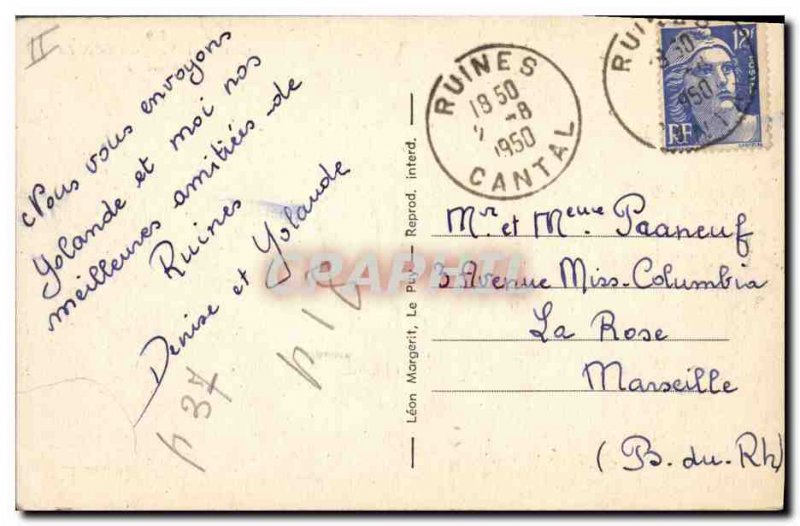 II
Nous vous envoyons
Yolande et moi nos
meilleures amitiées de
Ruines
Denise et Yolande
p 37
Léon Margerit, Le Puy — Reprod. interd.
RUINES
18 50
-8
1950
CANTAL
RUINES
18 50
1950
12F
POSTES
RF
Mr et Meuue Paaneuf
3 Avenue Miss-Columbia
La Rose
Marseille
(B. du. Rh)
CPAPHIL